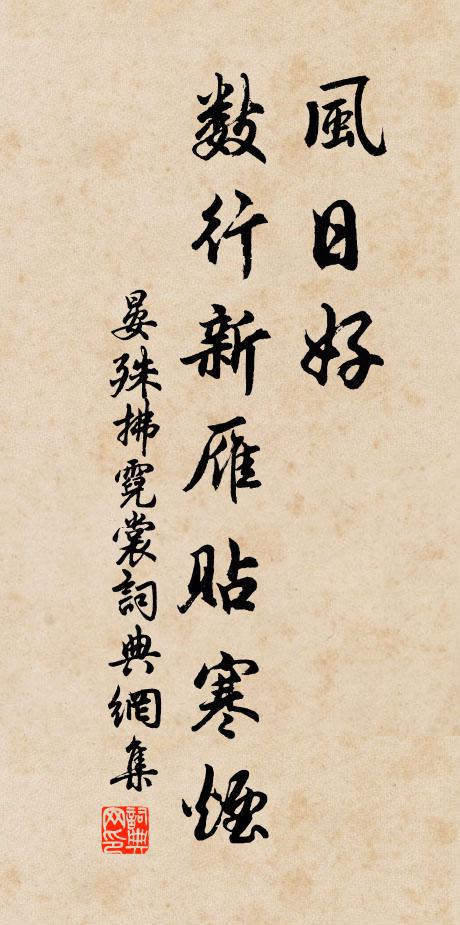 風日好
數行新雁貼寒煙
晏殊拂霓裳詞典網集
詞典
网印